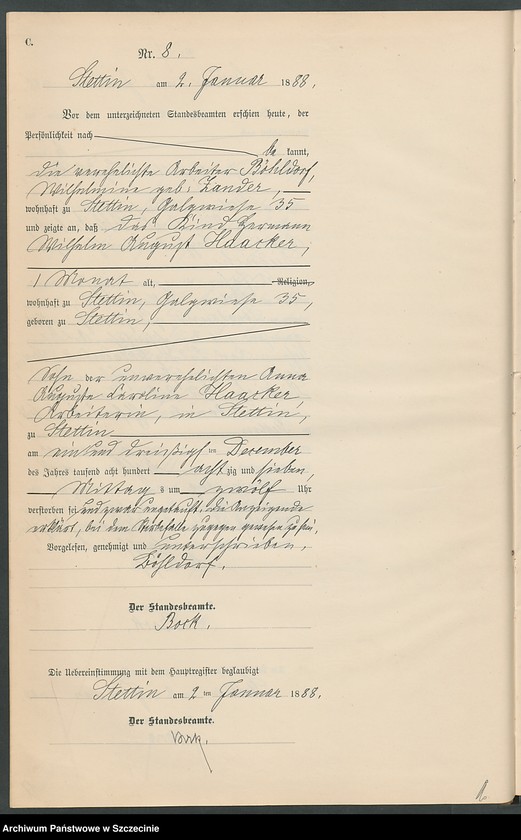 C.
Nr. 8.
Stettin am 2. Januar 1888.
Vor dem unterzeichneten Standesbeamten erschien heute, der
Persönlichkeit nach
be kannt,
die verehelichte Arbeiter Böhldorf,
Wilhelmine geb. Zander,
wohnhaft zu Stettin, Galgwiese 35
und zeigte an, daß das Kind Hermann
Wilhelm August Haacker,
1 Monat alt, Religion,
wohnhaft zu Stettin, Galgwiese 35,
geboren zu Stettin,
Sohn der unverehelichten Anna
Auguste Caroline Haacker,
Arbeiterin, in Stettin,
zu Stettin
am ein und dreißigsten December
des Jahres tausend acht hundert achtzig und sieben,
Mittags um zwölf Uhr
verstorben sei und zwar ungetauft. Die Anzeigende
erklärt, bei dem Sterbefalle zugegen gewesen zu sein.
Vorgelesen, genehmigt und unterschrieben.
Böhldorf.
Der Standesbeamte.
Bock.
Die Uebereinstimmung mit dem Hauptregister beglaubigt
Stettin am 2ten Januar 1888.
Der Standesbeamte.
Bock.
Archiwum Państwowe w Szczecinie